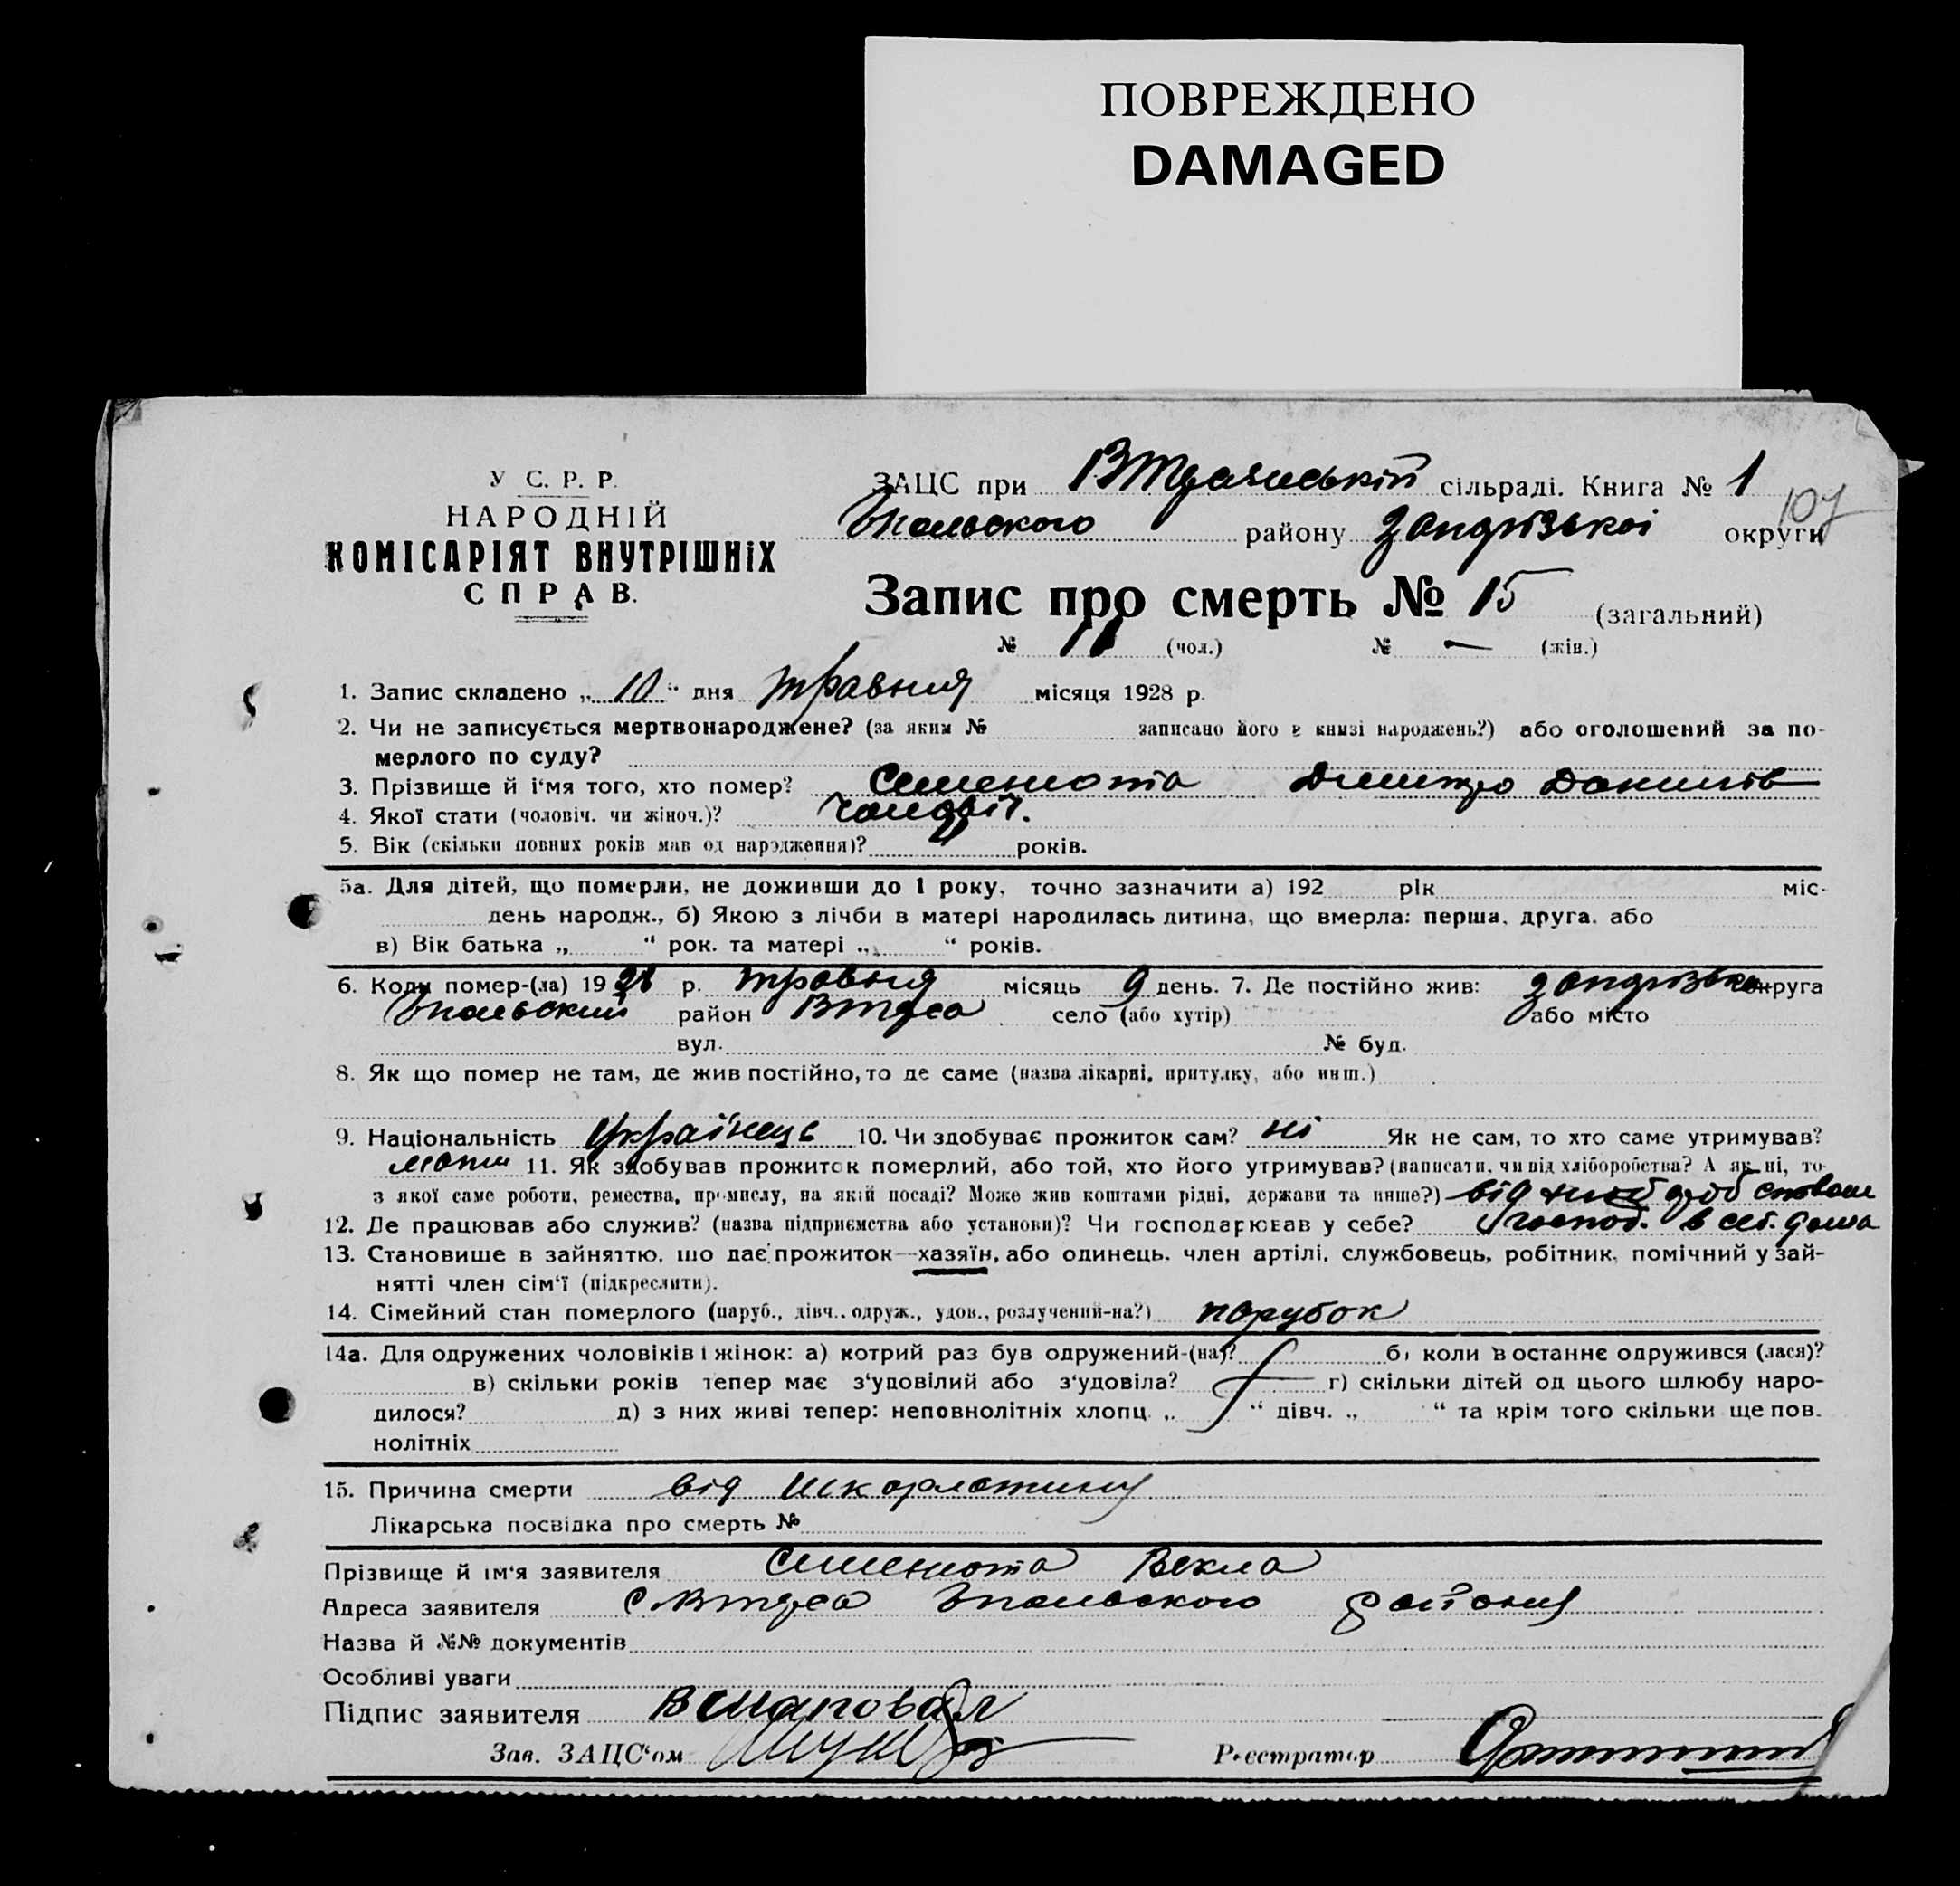 ПОВРЕЖДЕНО
DAMAGED
У С. Р. Р.
НАРОДНІЙ
КОМІСАРІЯТ ВНУТРІШНІХ
СПРАВ.
ЗАЦС при сільраді. Книга № 1
107
району округи
Запис про смерть № 15 (загальний)
№ 11 (чол.) № — (жін.)
1. Запис складено „ 10 “ дня травня місяця 1928 р.
2. Чи не записується мертвонароджене? (за яким № записано його в книзі народжень?) або оголошений за по-
мерлого по суду?
3. Прізвище й і‘мя того, хто помер? Семенюта Дмитро Данилів
4. Якої стати (чоловіч. чи жіноч.)?
5. Вік (скільки повних років мав од народження)? років.
5а. Для дітей, що померли, не доживши до 1 року, точно зазначити а) 192 рік міс-
день народж., б) Якою з лічби в матері народилась дитина, що вмерла: перша, друга, або
в) Вік батька „ “ рок. та матері „ “ років.
6. Коли помер-(ла) 1928 р. травня місяць 9 день. 7. Де постійно жив: округа
район село (або хутір) або місто
вул. № буд.
8. Як що помер не там, де жив постійно, то де саме (назва лікарні, притулку, або инш.)
9. Національність Українець 10. Чи здобуває прожиток сам? ні Як не сам, то хто саме утримував?
мати 11. Як здобував прожиток померлий, або той, хто його утримував? (написати, чи від хліборобства? А як ні, то
з якої саме роботи, ремества, промислу, на якій посаді? Може жив коштами рідні, держави та инше?) від
12. Де працював або служив? (назва підприємства або установи)? Чи господарював у себе? господ. в себ. дома
13. Становище в зайняттю, що дає прожиток—хазяїн, або одинець, член артілі, службовець, робітник, помічний у зай-
нятті член сім‘ї (підкреслити).
14. Сімейний стан померлого (паруб., дівч., одруж., удов., розлучений-на?) парубок
14а. Для одружених чоловіків і жінок: а) котрий раз був одружений-(на)? б) коли в останнє одружився (лася)?
в) скільки років тепер має з‘удовілий або з‘удовіла? г) скільки дітей од цього шлюбу наро-
дилося? д) з них живі тепер: неповнолітніх хлопц. „ “ дівч. „ “ та крім того скільки ще пов.
нолітніх
15. Причина смерти від шкарлатини
Лікарська посвідка про смерть №
Прізвище й ім‘я заявителя Семенюта Векла
Адреса заявителя района
Назва й №№ документів
Особливі уваги
Підпис заявителя
Зав. ЗАЦС‘ом Реєстратор